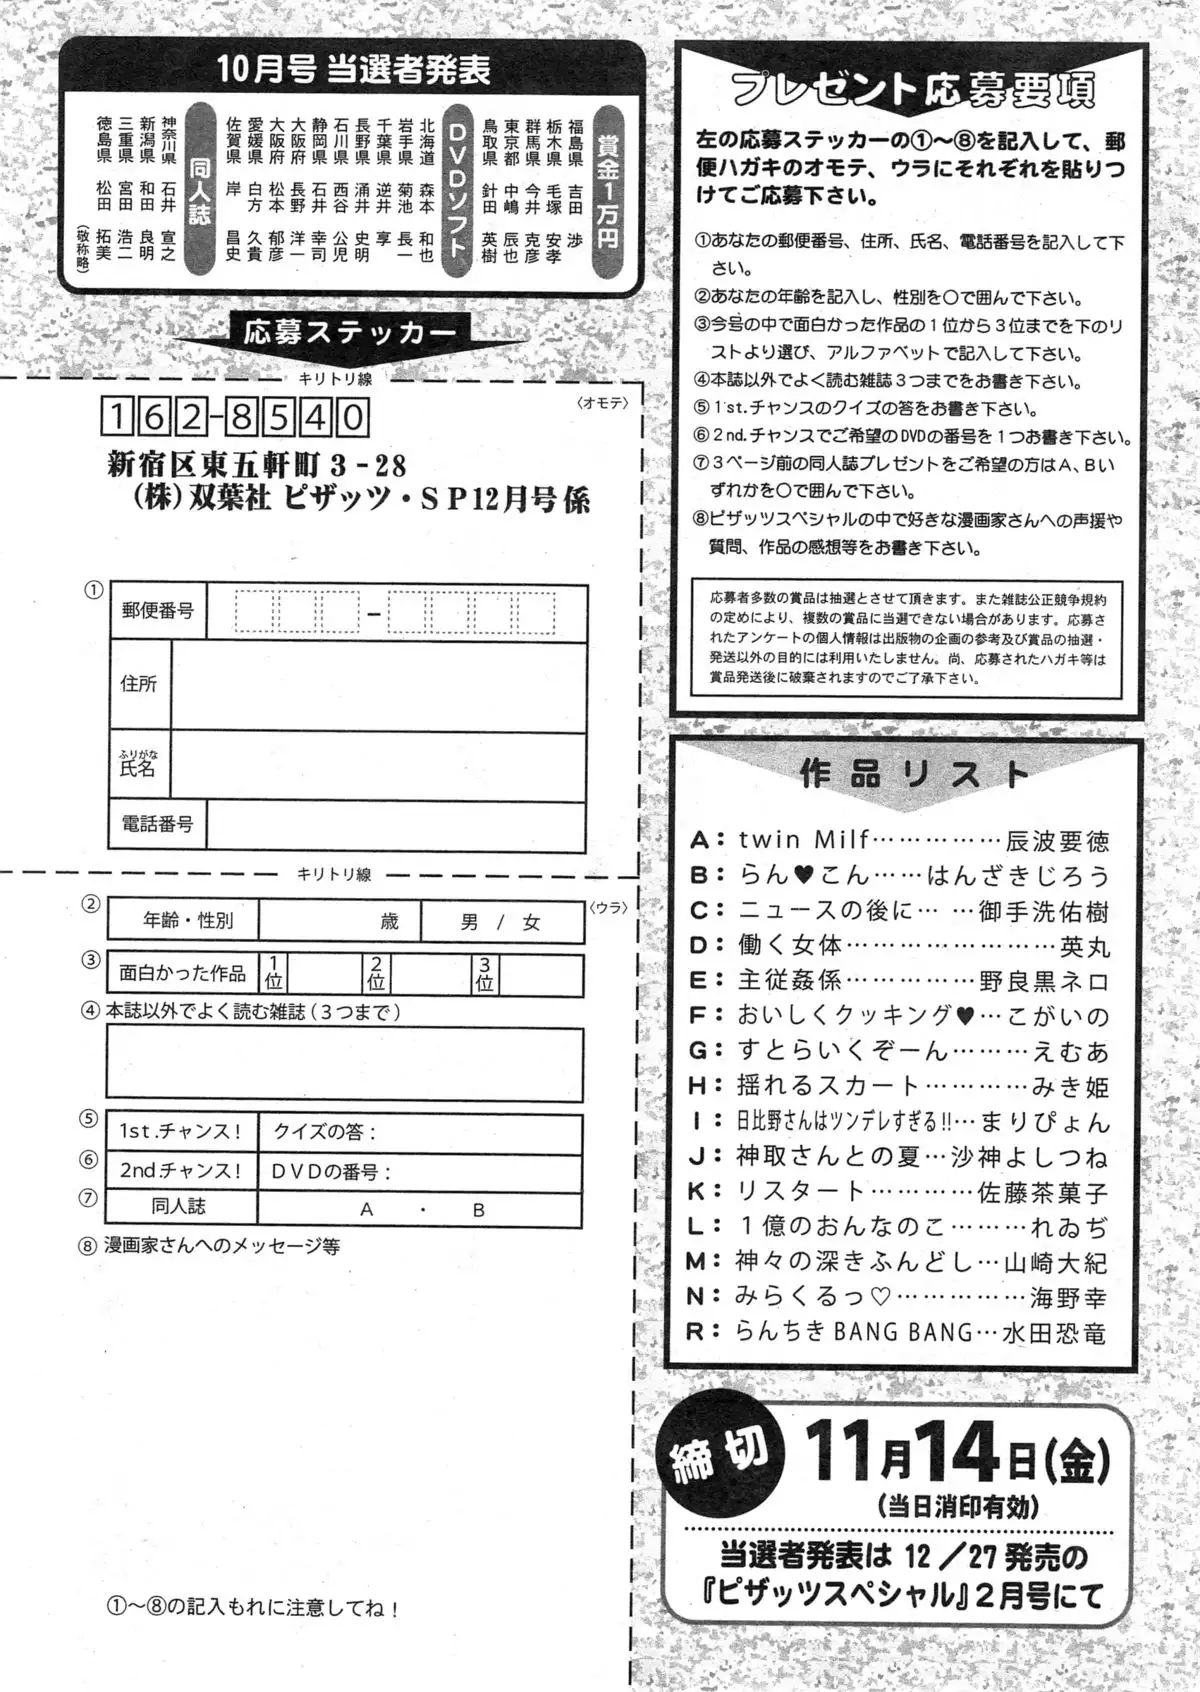 10月号 当選者発表
賞金1万円
福島県 吉田 渉
栃木県 毛塚 安孝
群馬県 今井 克彦
東京都 中嶋 辰也
鳥取県 針田 英樹
DVDソフト
北海道 森本 和也
岩手県 菊池 長一
千葉県 逆井 享
長野県 涌井 史明
石川県 西谷 公児
静岡県 石井 幸司
大阪府 長野 洋一
大阪府 松本 郁彦
愛媛県 白方 久貴
佐賀県 岸 昌史
同人誌
神奈川県 石井 宣之
新潟県 和田 良明
三重県 宮田 浩二
徳島県 松田 拓美
(敬称略)
応募ステッカー
キリトリ線
162-8540
〈オモテ〉
新宿区東五軒町3-28
(株)双葉社 ピザッツ・SP12月号係
①
郵便番号
住所
ふりがな
氏名
電話番号
キリトリ線
〈ウラ〉
② 年齢・性別 歳 男 / 女
③ 面白かった作品 1位 2位 3位
④ 本誌以外でよく読む雑誌(3つまで)
⑤ 1st.チャンス! クイズの答:
⑥ 2nd.チャンス! DVDの番号:
⑦ 同人誌 A ・ B
⑧ 漫画家さんへのメッセージ等
①〜⑧の記入もれに注意してね!
プレゼント応募要項
左の応募ステッカーの①〜⑧を記入して、郵
便ハガキのオモテ、ウラにそれぞれを貼りつ
けてご応募下さい。
①あなたの郵便番号、住所、氏名、電話番号を記入して下
さい。
②あなたの年齢を記入し、性別を〇で囲んで下さい。
③今号の中で面白かった作品の1位から3位までを下のリ
ストより選び、アルファベットで記入して下さい。
④本誌以外でよく読む雑誌3つまでをお書き下さい。
⑤1st.チャンスのクイズの答をお書き下さい。
⑥2nd.チャンスでご希望のDVDの番号を1つお書き下さい。
⑦3ページ前の同人誌プレゼントをご希望の方はA、Bい
ずれかを〇で囲んで下さい。
⑧ピザッツスペシャルの中で好きな漫画家さんへの声援や
質問、作品の感想等をお書き下さい。
応募者多数の賞品は抽選とさせて頂きます。また雑誌公正競争規約
の定めにより、複数の賞品に当選できない場合があります。応募さ
れたアンケートの個人情報は出版物の企画の参考及び賞品の抽選・
発送以外の目的には利用いたしません。尚、応募されたハガキ等は
賞品発送後に破棄されますのでご了承下さい。
作品リスト
A：twin Milf……………辰波要徳
B：らん♥こん……はんざきじろう
C：ニュースの後に……御手洗佑樹
D：働く女体……………………英丸
E：主従姦係……………野良黒ネロ
F：おいしくクッキング♥…こがいの
G：すとらいくぞーん………えむあ
H：揺れるスカート…………みき姫
I：日比野さんはツンデレすぎる!!…まりぴょん
J：神取さんとの夏…沙神よしつね
K：リスタート…………佐藤茶菓子
L：1億のおんなのこ………れゐぢ
M：神々の深きふんどし…山崎大紀
N：みらくるっ♡……………海野幸
R：らんちきBANG BANG…水田恐竜
締切
11月14日(金)
(当日消印有効)
当選者発表は 12／27 発売の
『ピザッツスペシャル』2月号にて